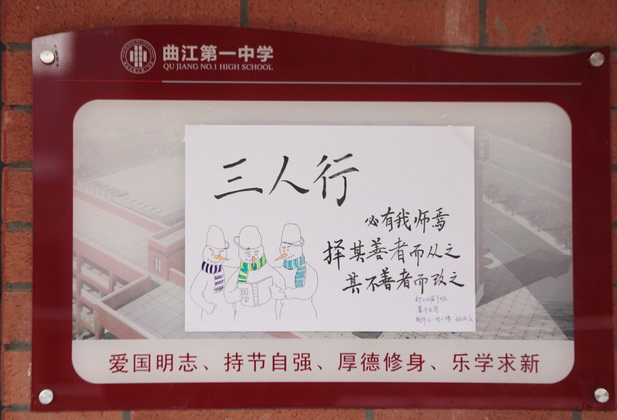 曲江第一中学
QU JIANG NO.1 HIGH SCHOOL
三人行
必有我师焉
择其善者而从之
其不善者而改之
爱国明志、持节自强、厚德修身、乐学求新